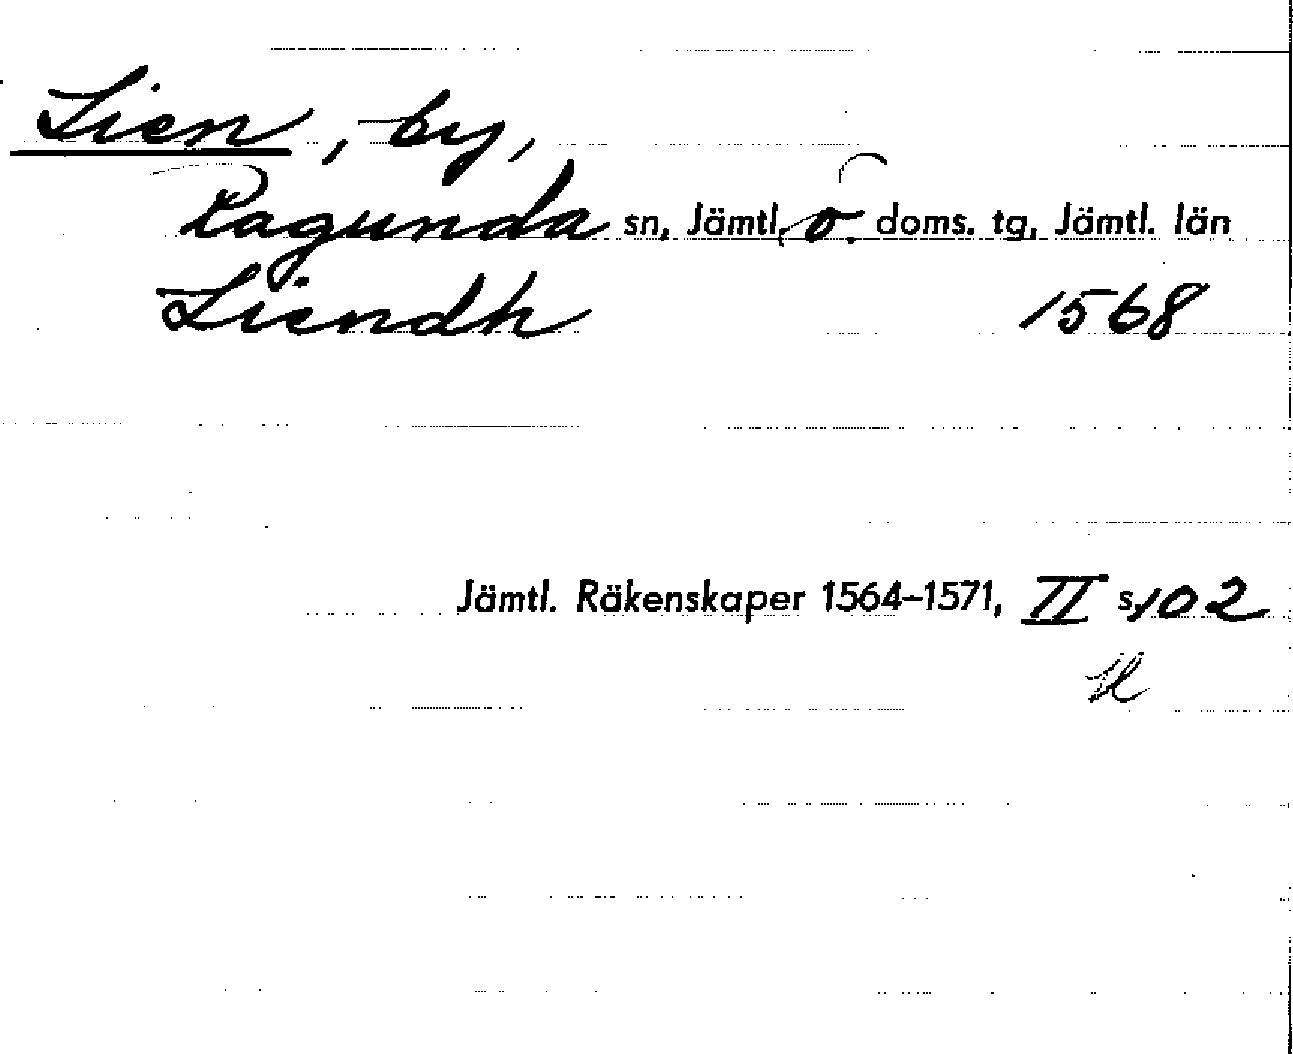 Lien, by,
Ragunda sn, Jämtl. ö. doms. tg, Jämtl. län
Liendh 1568
Jämtl. Räkenskaper 1564–1571, II s. 102